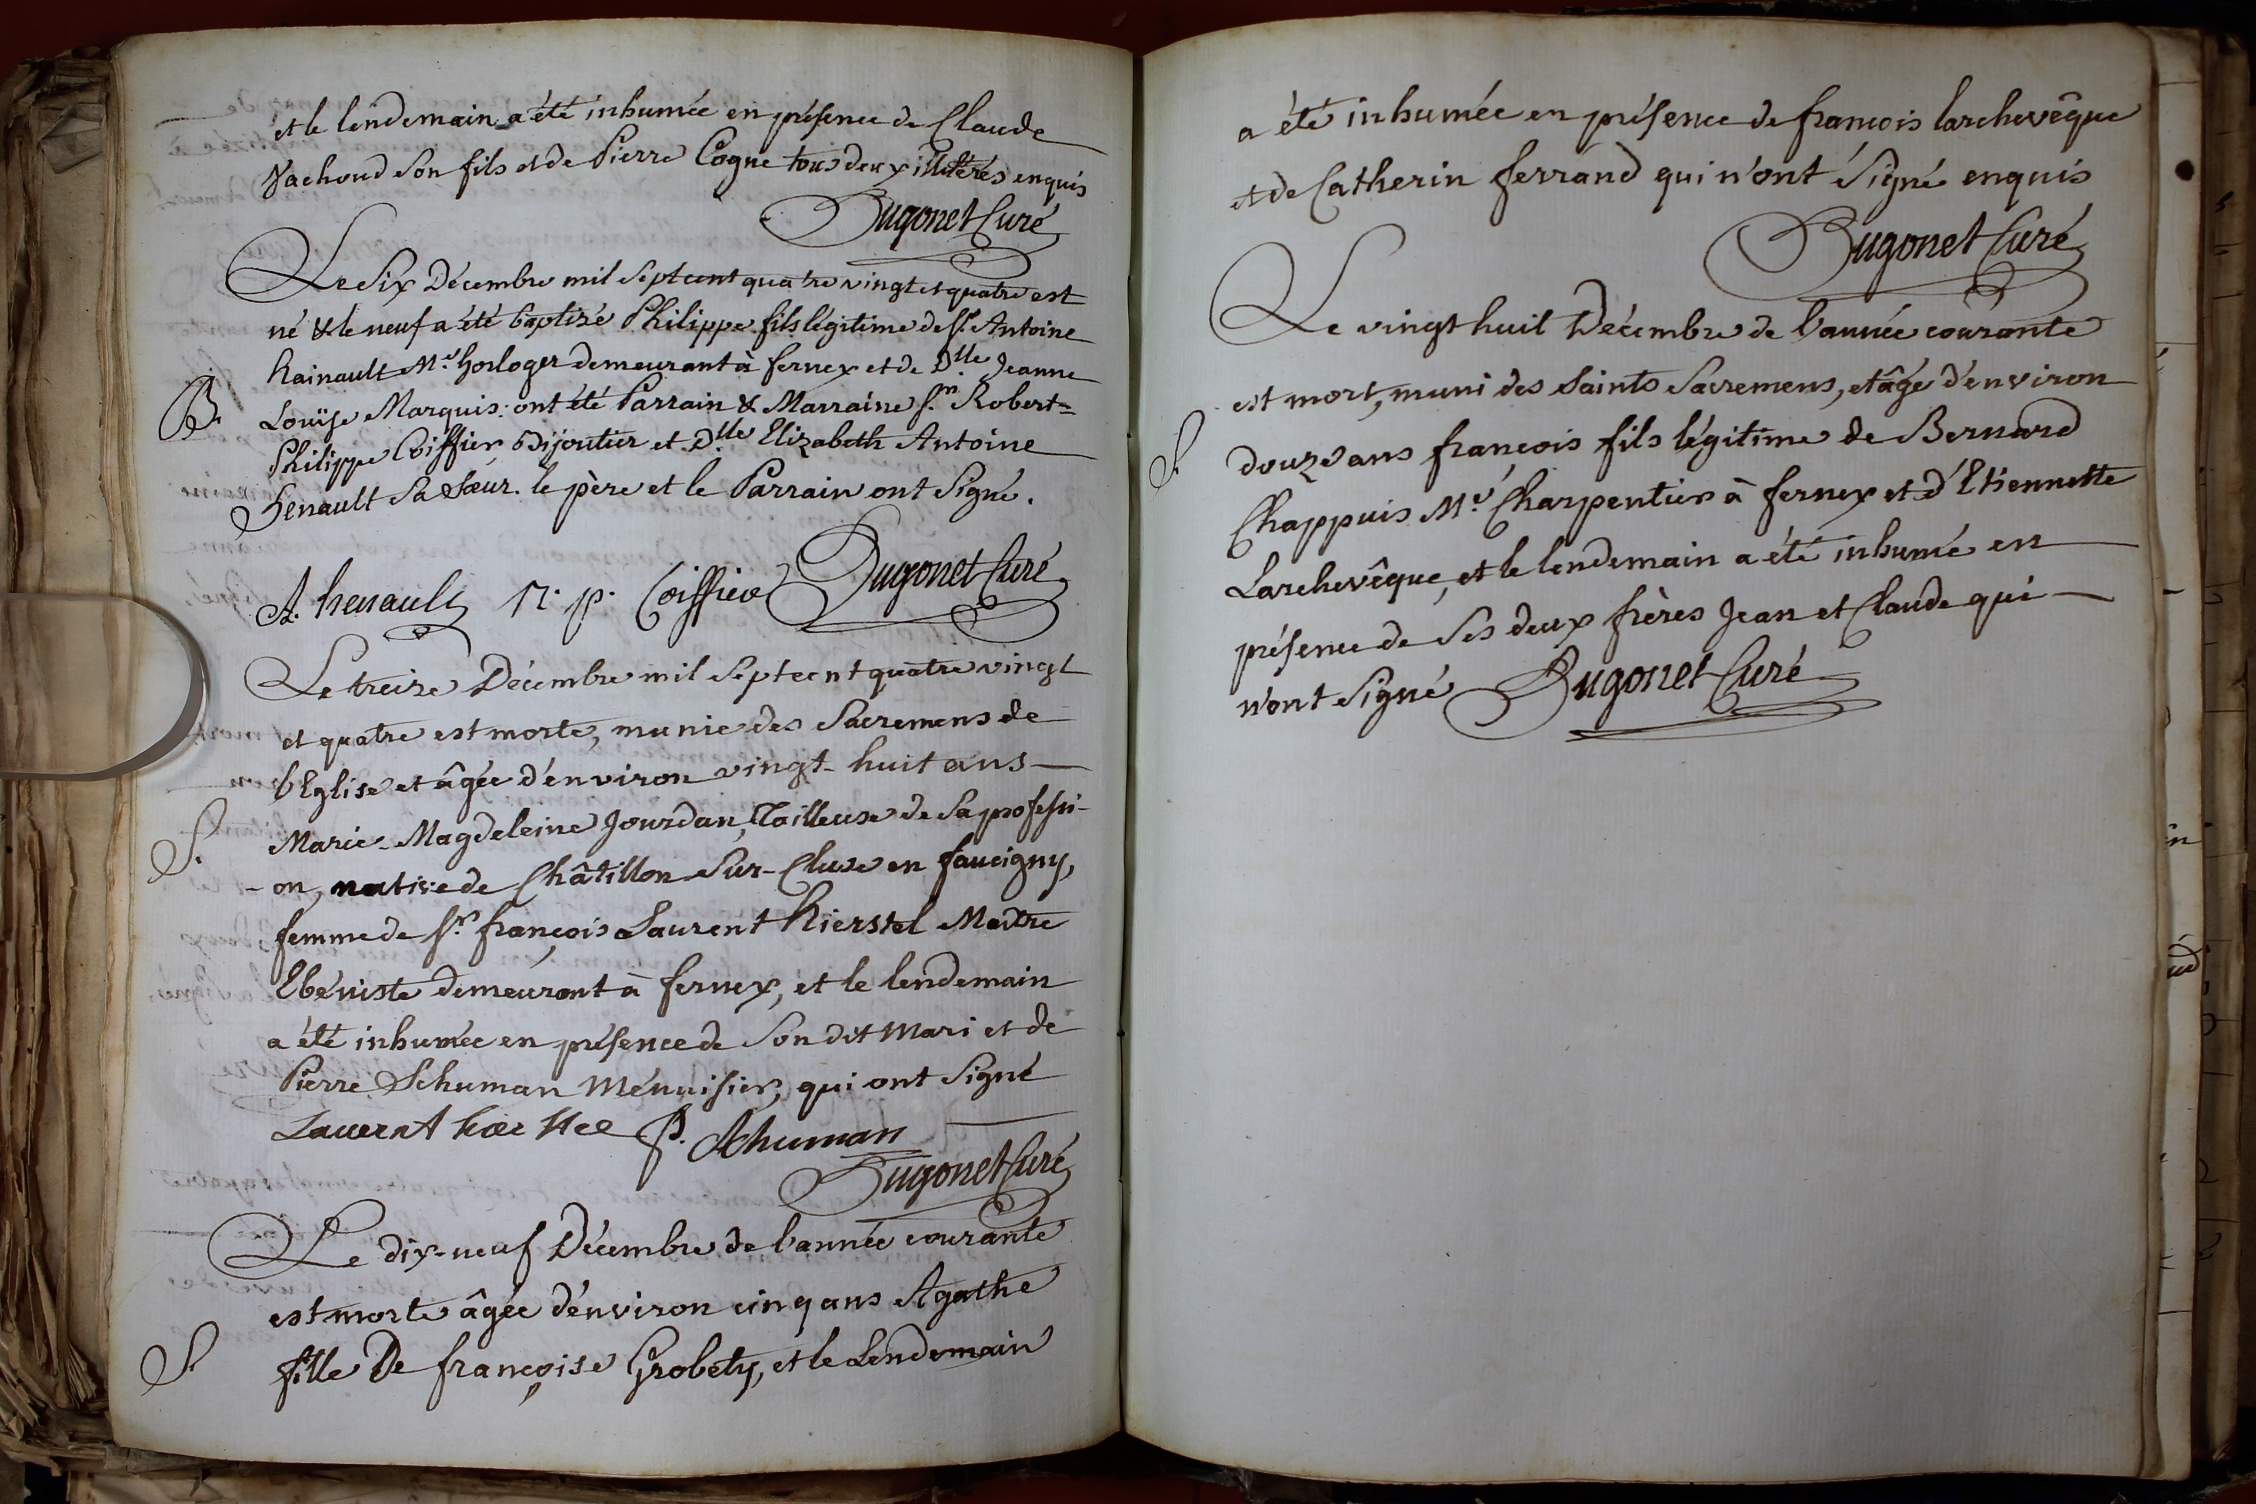 et le lendemain a été inhumée en présence de Claude
Vachoud Son fils et de Pierre Cogne tous deux illitérés enquis
Bugonet Curé
Le Six Décembre mil Septcent quatre vingt et quatre est
né & le neuf a été baptisé Philippe fils légitime de Sr. Antoine
hainault Me. horloger demeurant à fernex et de Dlle. Jeanne
B. Louïse Marquis: ont été Parrain & Marraine Sr. Robert=
Philippe Coiffier Bijoutier et Dlle. Elizabeth Antoine
henault Sa Sœur. le père et le Parrain ont Signé.
A. henault r. p. Coiffier Bugonet Curé
Le treize Décembre mil Septcent quatre vingt
et quatre est morte, munie des Sacremens de
l'Eglise et âgée d'environ vingt-huit ans
S. Marie-Magdeleine Jourdan, Tailleuse de Sa professi-
-on, native de Châtillon-Sur-Cluse en faucigny,
femme de Sr. françois Laurent Kierstel Maître
Ebéniste demeurant à fernex, et le lendemain
a été inhumée en présence de Son dit Mari et de
Pierre Schuman Ménuisier, qui ont Signé
Lauernt P. Schuman
Bugonet Curé
Le dix-neuf Décembre de l'année courante
est morte âgée d'environ cinq ans Agathe
S. fille De françoise Grobety, et le Lendemain
a été inhumée en présence de francois larchevêque
et de Catherin ferrand qui n'ont Signé enquis
Bugonet Curé
Le vingt huit Décembre de l'année courante
est mort, muni des Saints Sacremens, et âgé d'environ
S. douze ans francois fils légitime de Bernard
Chappuis Me. Charpentier à fernex et d'Etiennette
Larchevêque, et le lendemain a été inhumé en
présence de Ses deux frères Jean et Claude qui
n'ont Signé Bugonet Curé